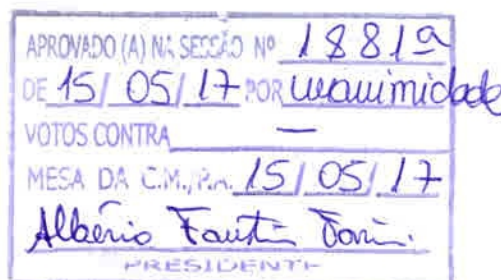 APROVADO (A) NA SESSÃO Nº 1881ª
DE 15/ 05/ 17 POR unanimidade
VOTOS CONTRA —
MESA DA C.M., P.A. 15/ 05/ 17
PRESIDENTE